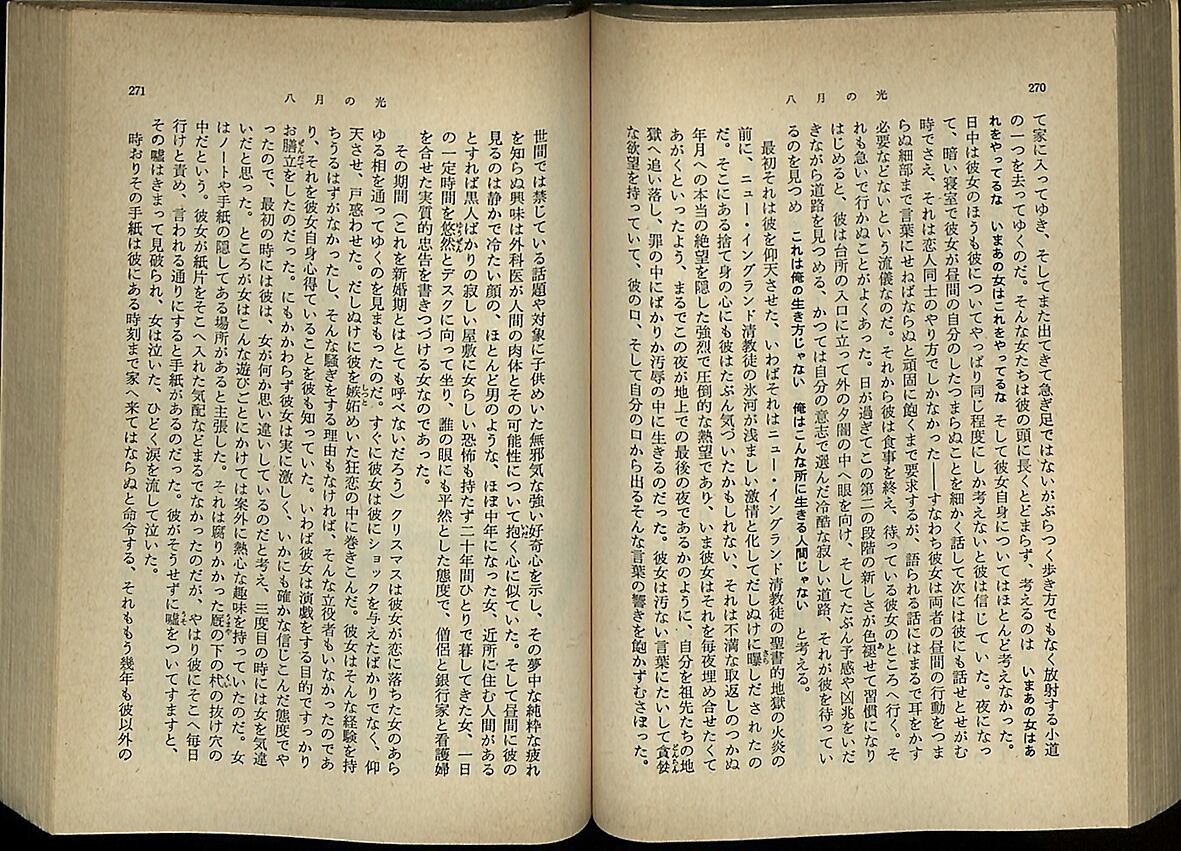 270
八月の光
て家に入ってゆき、そしてまた出てきて急ぎ足ではないがぶらつく歩き方でもなく放射する小道
の一つを去ってゆくのだ。そんな女たちは彼の頭に長くとどまらず、考えるのは　いまあの女はあ
れをやってるな　いまあの女はこれをやってるな　そして彼女自身についてはほとんど考えなかった。
日中は彼女のほうも彼についてやっぱり同じ程度にしか考えないと彼は信じていた。夜になっ
て、暗い寝室で彼女が昼間の自分のしたつまらぬことを細かく話して次には彼にも話せとせがむ
時でさえ、それは恋人同士のやり方でしかなかった——すなわち彼女は両者の昼間の行動をつま
らぬ細部まで言葉にせねばならぬと頑固に飽くまで要求するが、語られる話にはまるで耳をかす
必要などないという流儀なのだ。それから彼は食事を終え、待っている彼女のところへ行く。そ
れも急いで行かぬことがよくあった。日が過ぎてこの第二の段階の新しさが色褪せて習慣になり
はじめると、彼は台所の入口に立って外の夕闇の中へ眼を向け、そしてたぶん予感や凶兆をいだ
きながら道路を見つめる、かつては自分の意志で選んだ冷酷な寂しい道路、それが彼を待ってい
るのを見つめ　これは俺の生き方じゃない　俺はこんな所に生きる人間じゃない　と考える。
最初それは彼を仰天させた、いわばそれはニュー・イングランド清教徒の聖書的地獄の火炎の
前に、ニュー・イングランド清教徒の氷河が浅ましい激情と化してだしぬけに曝しだされたの
だ。そこにある捨て身の心にも彼はたぶん気づいたかもしれない、それは不満な取返しのつかぬ
年月への本当の絶望を隠した強烈で圧倒的な熱望であり、いま彼女はそれを毎夜埋め合せたくて
あがくといったよう、まるでこの夜が地上での最後の夜であるかのように、自分を祖先たちの地
獄へ追い落し、罪の中にばかりか汚辱の中に生きるのだった。彼女は汚ない言葉にたいして貪婪
な欲望を持っていて、彼の口、そして自分の口から出るそんな言葉の響きを飽かずむさぼった。
271
八月の光
世間では禁じている話題や対象に子供めいた無邪気な強い好奇心を示し、その夢中な純粋な疲れ
を知らぬ興味は外科医が人間の肉体とその可能性について抱く心に似ていた。そして昼間に彼の
見るのは静かで冷たい顔の、ほとんど男のような、ほぼ中年になった女、近所に住む人間がある
とすれば黒人ばかりの寂しい屋敷に女らしい恐怖も持たず二十年間ひとりで暮してきた女、一日
の一定時間を悠然とデスクに向って坐り、誰の眼にも平然とした態度で、僧侶と銀行家と看護婦
を合せた実質的忠告を書きつづける女なのであった。
その期間（これを新婚期とはとても呼べないだろう）クリスマスは彼女が恋に落ちた女のあら
ゆる相を通ってゆくのを見まもったのだ。すぐに彼女は彼にショックを与えたばかりでなく、仰
天させ、戸惑わせた。だしぬけに彼を嫉妬めいた狂恋の中に巻きこんだ。彼女はそんな経験を持
ちうるはずがなかったし、そんな騒ぎをする理由もなければ、そんな立役者もいなかったのであ
り、それを彼女自身心得ていることを彼も知っていた。いわば彼女は演戯をする目的ですっかり
お膳立をしたのだった。にもかかわらず彼女は実に激しく、いかにも確かな信じこんだ態度でや
ったので、最初の時には彼は、女が何か思い違いしているのだと考え、三度目の時には女を気違
いだと思った。ところが女はこんな遊びごとにかけては案外に熱心な趣味を持っていたのだ。女
はノートや手紙の隠してある場所があると主張した。それは腐りかかった厩の下の杙の抜け穴の
中だという。彼女が紙片をそこへ入れた気配などまるでなかったのだが、やはり彼にそこへ毎日
行けと責め、言われる通りにすると手紙があるのだった。彼がそうせずに嘘をついてすますと、
その嘘はきまって見破られ、女は泣いた、ひどく涙を流して泣いた。
時おりその手紙は彼にある時刻まで家へ来てはならぬと命令する、それももう幾年も彼以外の